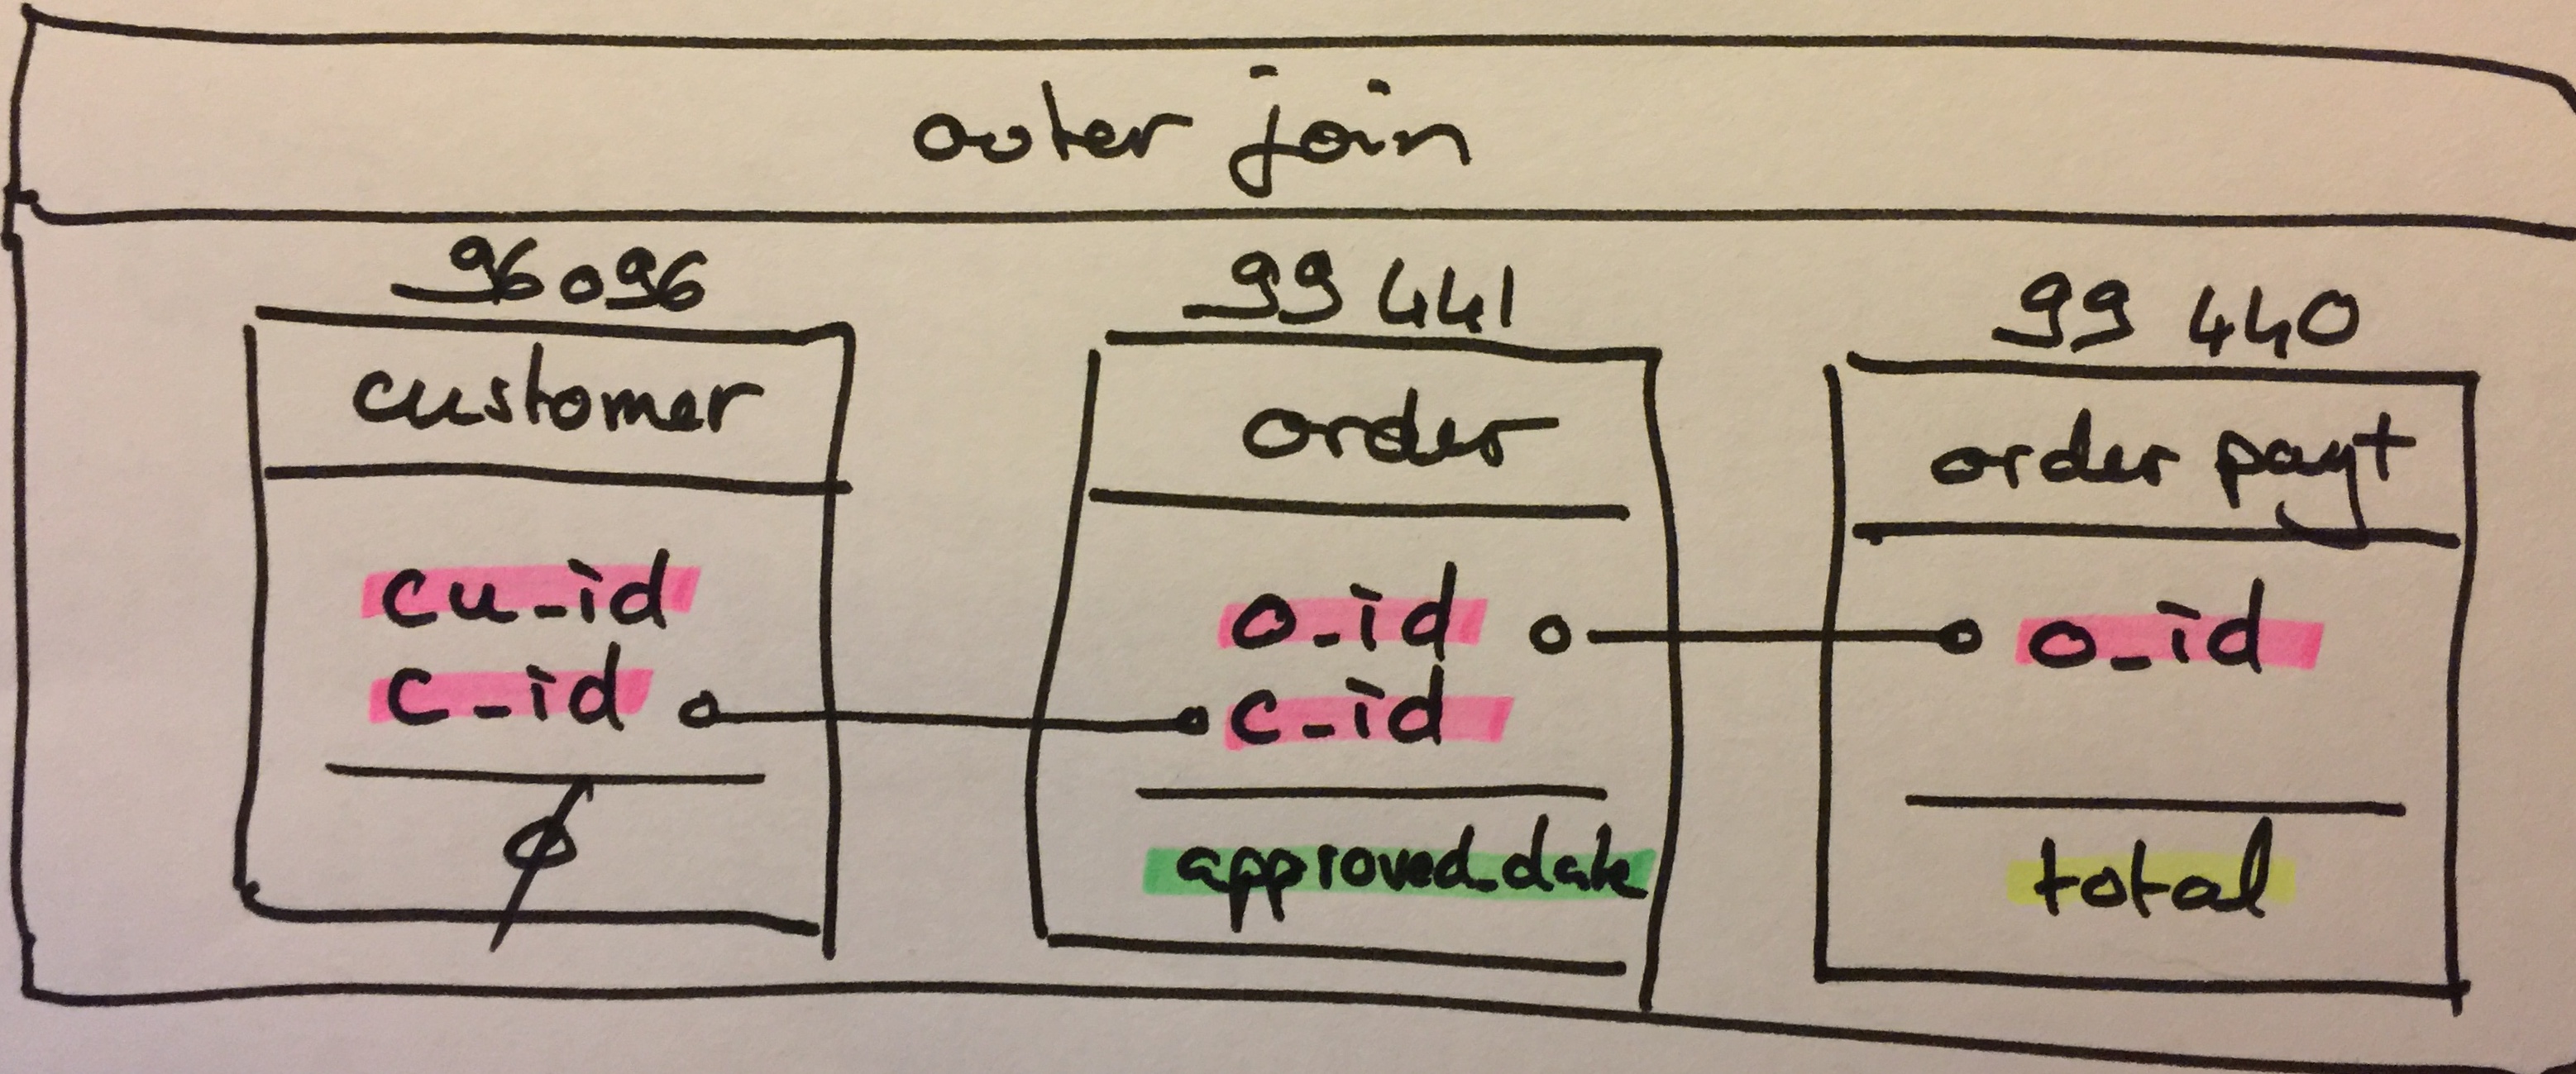 outer join
96096
customer
cu_id
c_id
ϕ
99 441
order
o_id
c_id
approved_date
99 440
order payt
o_id
total